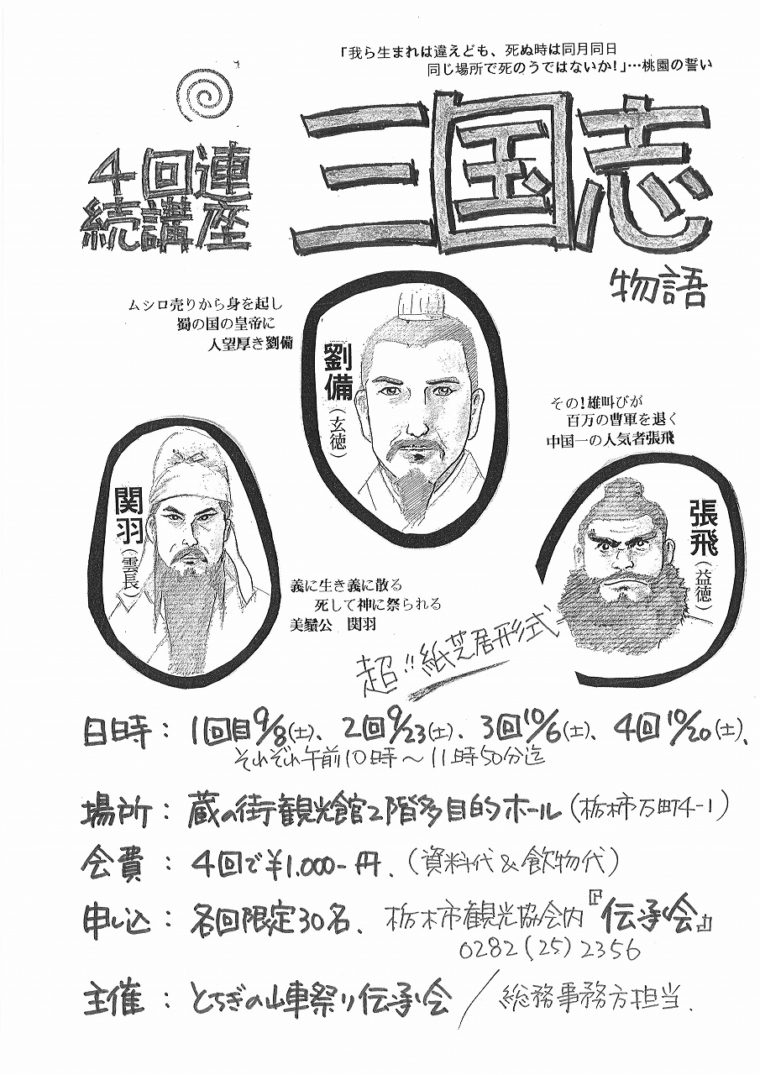 「我ら生まれは違えども、死ぬ時は同月同日
同じ場所で死のうではないか!」…桃園の誓い
4回連
続講座
三国志
物語
ムシロ売りから身を起し
蜀の国の皇帝に
人望厚き劉備
劉備(玄徳)
その!雄叫びが
百万の曹軍を退く
中国一の人気者張飛
関羽(雲長)
張飛(益徳)
義に生き義に散る
死して神に祭られる
美鬚公 関羽
超!!紙芝居形式
日時: 1回目9/8(土)、2回9/23(土)、3回10/6(土)、4回10/20(土)、
それぞれ午前10時〜11時50分迄
場所: 蔵の街観光館2階多目的ホール(栃木市万町4-1)
会費: 4回で¥1.000-円、(資料代&飲物代)
申し込: 各回限定30名、栃木市観光協会内『伝承会』
0282(25)2356
主催: とちぎの山車祭り伝承会/総務事務方担当.